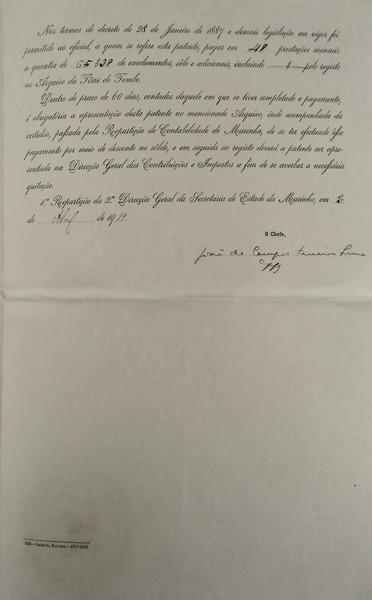 Nos termos do decreto de 28 de Janeiro de 1887 e demais legislação em vigor foi
permitido ao oficial, a quem se refere esta patente, pagar em 48 prestações mensais
a quantia de 65$838 de emolumentos, sêlo e adicionais, incluindo —$— pelo registo
no Arquivo da Tôrre do Tombo.
Dentro do prazo de 60 dias, contados daquele em que se tiver completado o pagamento,
é obrigatória a apresentação desta patente no mencionado Arquivo, indo acompanhada da
certidão, passada pela Repartição de Contabilidade de Marinha, de se ter efectuado êsse
pagamento por meio de desconto no sôldo, e em seguida ao registo deverá a patente ser apre-
sentada na Direcção Geral das Contribuições e Impostos a fim de se averbar a necessária
quitação.
1.ª Repartição da 2.ª Direcção Geral da Secretaria de Estado da Marinha, em 2
de Abril de 1919
O Chefe,
José de Campos Ferreira Lima
— Imprensa Nacional — 1917-1918